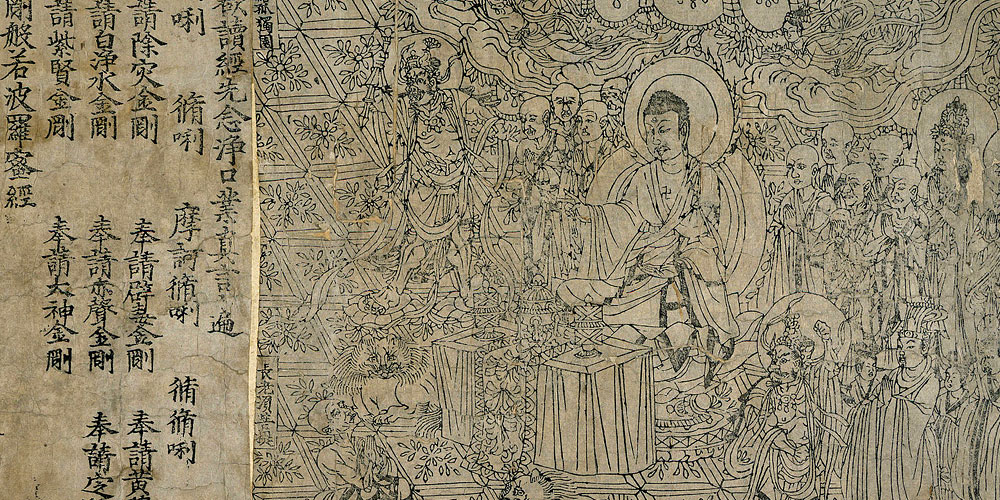 孤獨園
長老須菩提
欲讀經先念淨口業真言遍
唎 脩唎 摩訶脩唎 脩脩唎
請除灾金剛 奉請辟毒金剛 奉請黄
請白淨水金剛 奉請赤聲金剛 奉請定
請紫賢金剛 奉請大神金剛
剛般若波羅蜜經